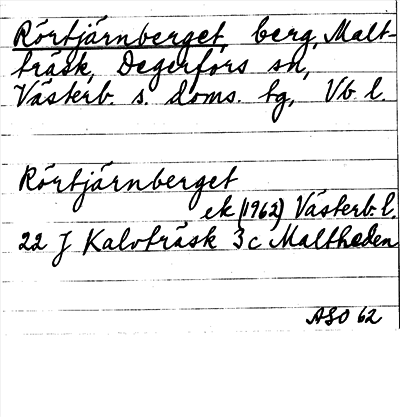 Rörtjärnberget, berg, Malt-
träsk, Degerfors sn,
Västerb. s. doms. tg, Vb. l.
Rörtjärnberget
ek (1962) Västerb. l.
22 J Kalvträsk 3c Maltheden
ASO 62